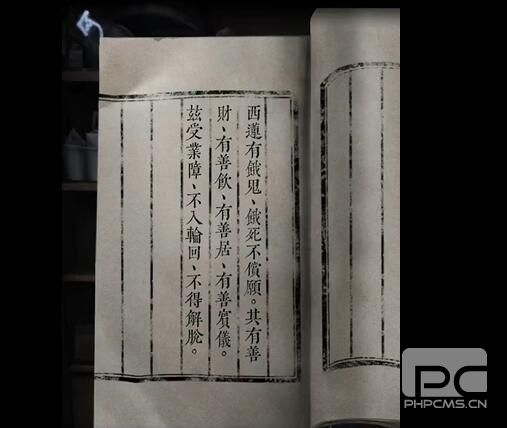 西蓮有餓鬼、餓死不償願。其有善
財、有善飲、有善居、有善賓儀。
玆受業障、不入輪回、不得解脫。
PC
PHPCMS.CN